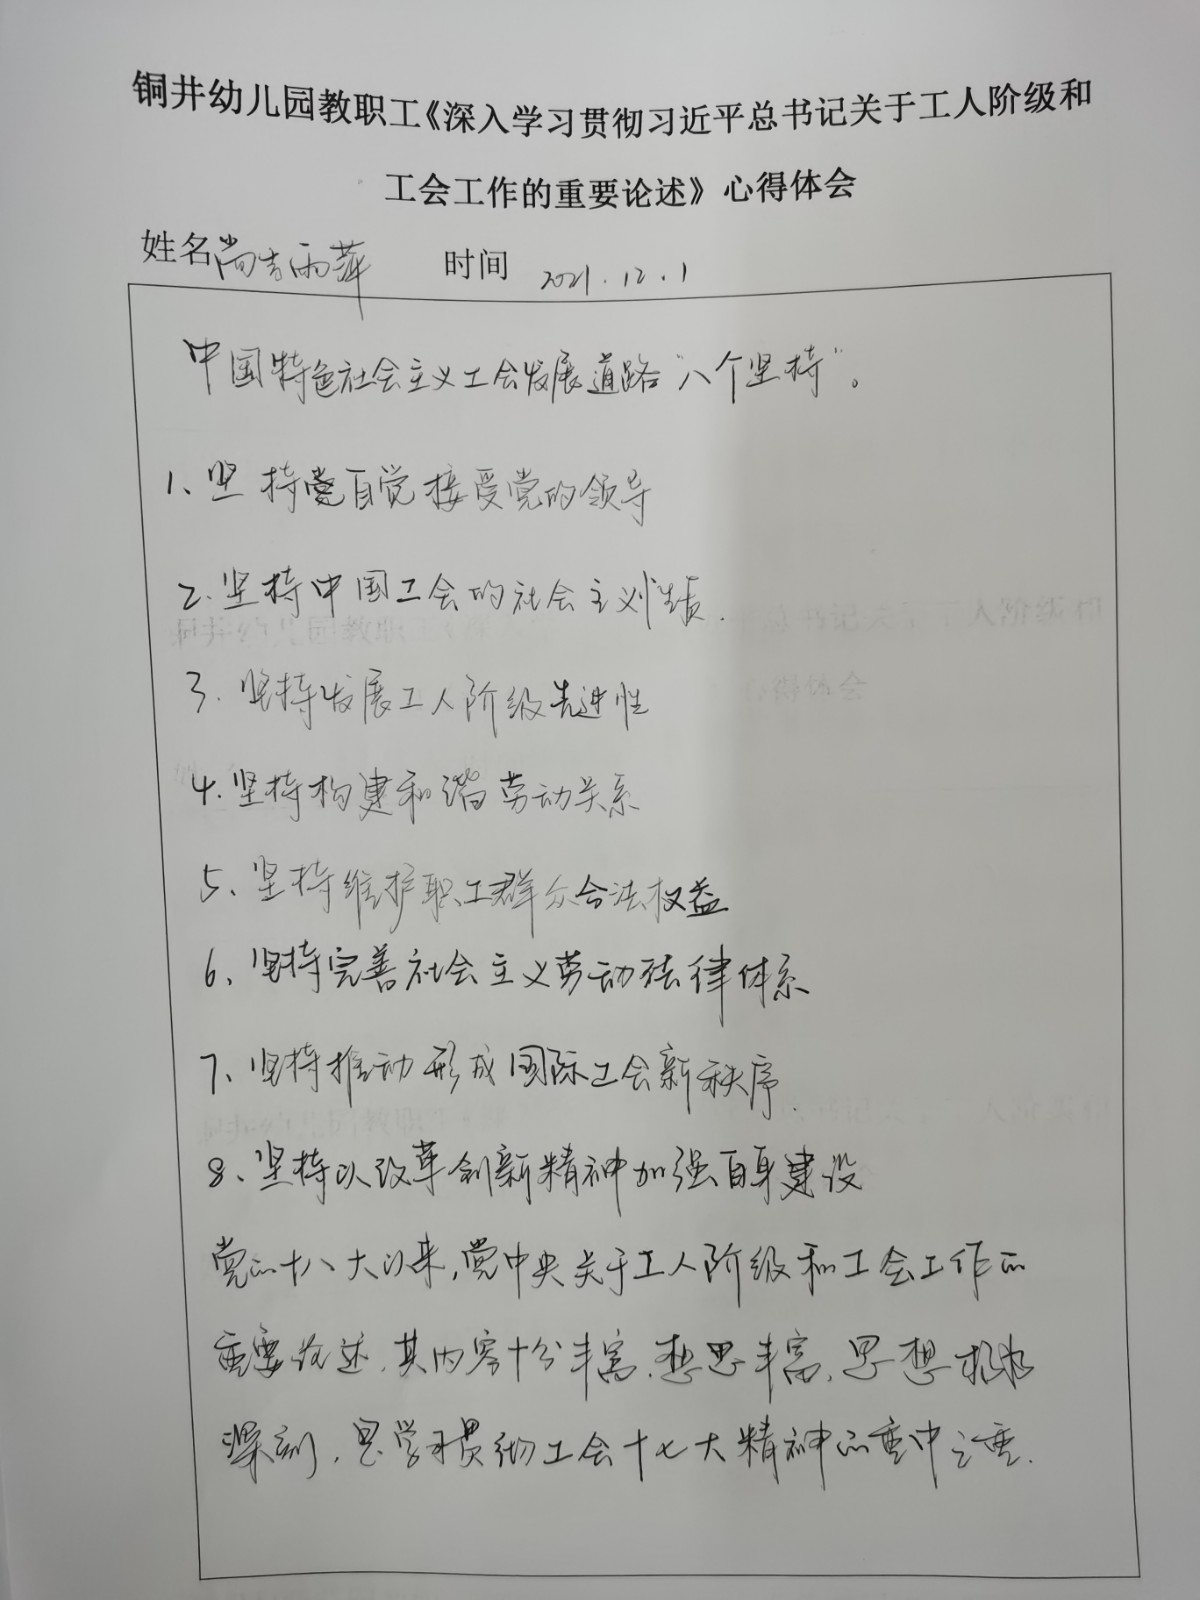 铜井幼儿园教职工《深入学习贯彻习近平总书记关于工人阶级和
工会工作的重要论述》心得体会
姓名尚吉雨萍 时间 2021.12.1
中国特色社会主义工会发展道路“八个坚持”。
1、坚持党自觉接受党的领导
2.坚持中国工会的社会主义性质.
3.坚持发展工人阶级先进性
4.坚持构建和谐劳动关系
5、坚持维护职工群众合法权益
6、坚持完善社会主义劳动法律体系
7、坚持推动形成国际工会新秩序.
8、坚持以改革创新精神加强自身建设
党的十八大以来,党中央关于工人阶级和工会工作的
重要论述,其内容十分丰富,想思丰富,思想极为
深刻,是学习贯彻工会十七大精神的重中之重.